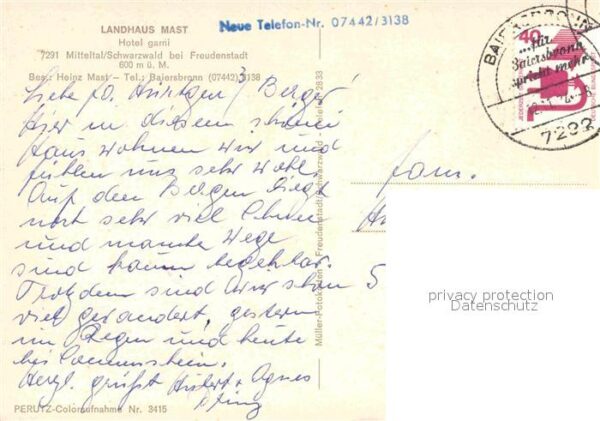 LANDHAUS MAST
Hotel garni
7291 Mitteltal/Schwarzwald bei Freudenstadt
600 m ü. M.
Bes.: Heinz Mast – Tel.: Baiersbronn (07442) 3138
Neue Telefon-Nr. 07442/3138
Liebe
Hier in diesem schönen
Haus wohnen wir und
fühlen uns sehr wohl.
Auf den Bergen liegt
noch sehr viel Schnee
und manche Wege
sind kaum begehbar.
Trotzdem sind wir schon
viel gewandert, gestern
im Regen und heute
bei Sonnenschein.
Herzl. grüßt Hubert + Agnes
PERUTZ-Coloraufnahme Nr. 3415
Müller-Fotokarten · Freudenstadt/Schwarzwald · Telefon 2833
Fam.
5
BAIERSBRONN
...Hier
Baiersbronn
spricht mehr
7292
40
DEUTSCHE BUNDESPOST
privacy protection
Datenschutz